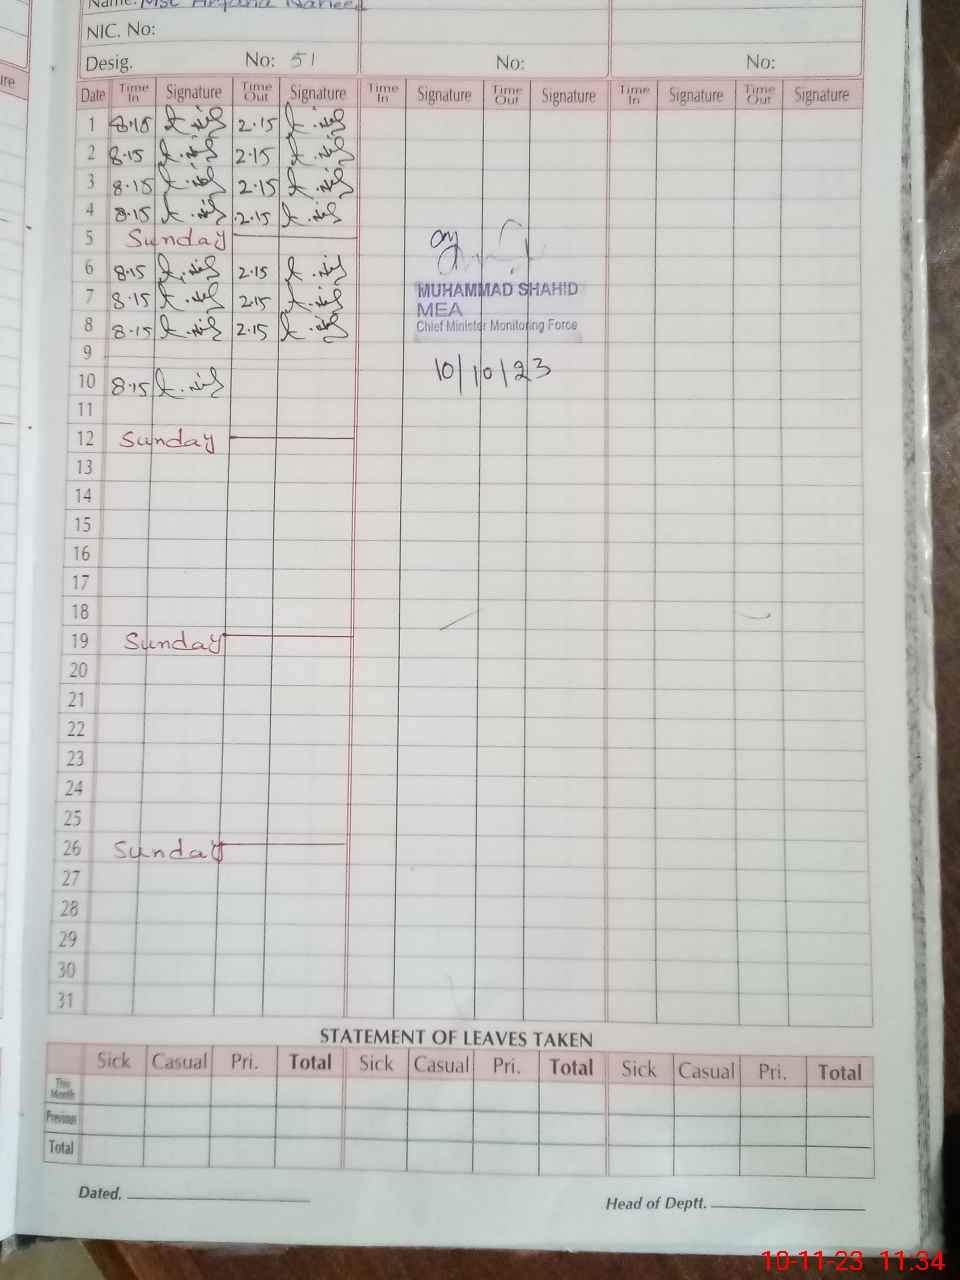 Name: Mst Arfana Naheed
NIC. No:
Desig. No: 51 No: No:
Date Time In Signature Time Out Signature Time In Signature Time Out Signature Time In Signature Time Out Signature
1 8.15 2.15
2 8.15 2.15
3 8.15 2.15
4 8.15 2.15
5 Sunday
6 8.15 2.15
7 8.15 2.15
8 8.15 2.15
9
10 8.15
11
12 Sunday
13
14
15
16
17
18
19 Sunday
20
21
22
23
24
25
26 Sunday
27
28
29
30
31
MUHAMMAD SHAHID
MEA
Chief Minister Monitoring Force
10/10/23
STATEMENT OF LEAVES TAKEN
Sick Casual Pri. Total Sick Casual Pri. Total Sick Casual Pri. Total
This Month
Previous
Total
Dated.
Head of Deptt.
10-11-23 11:34